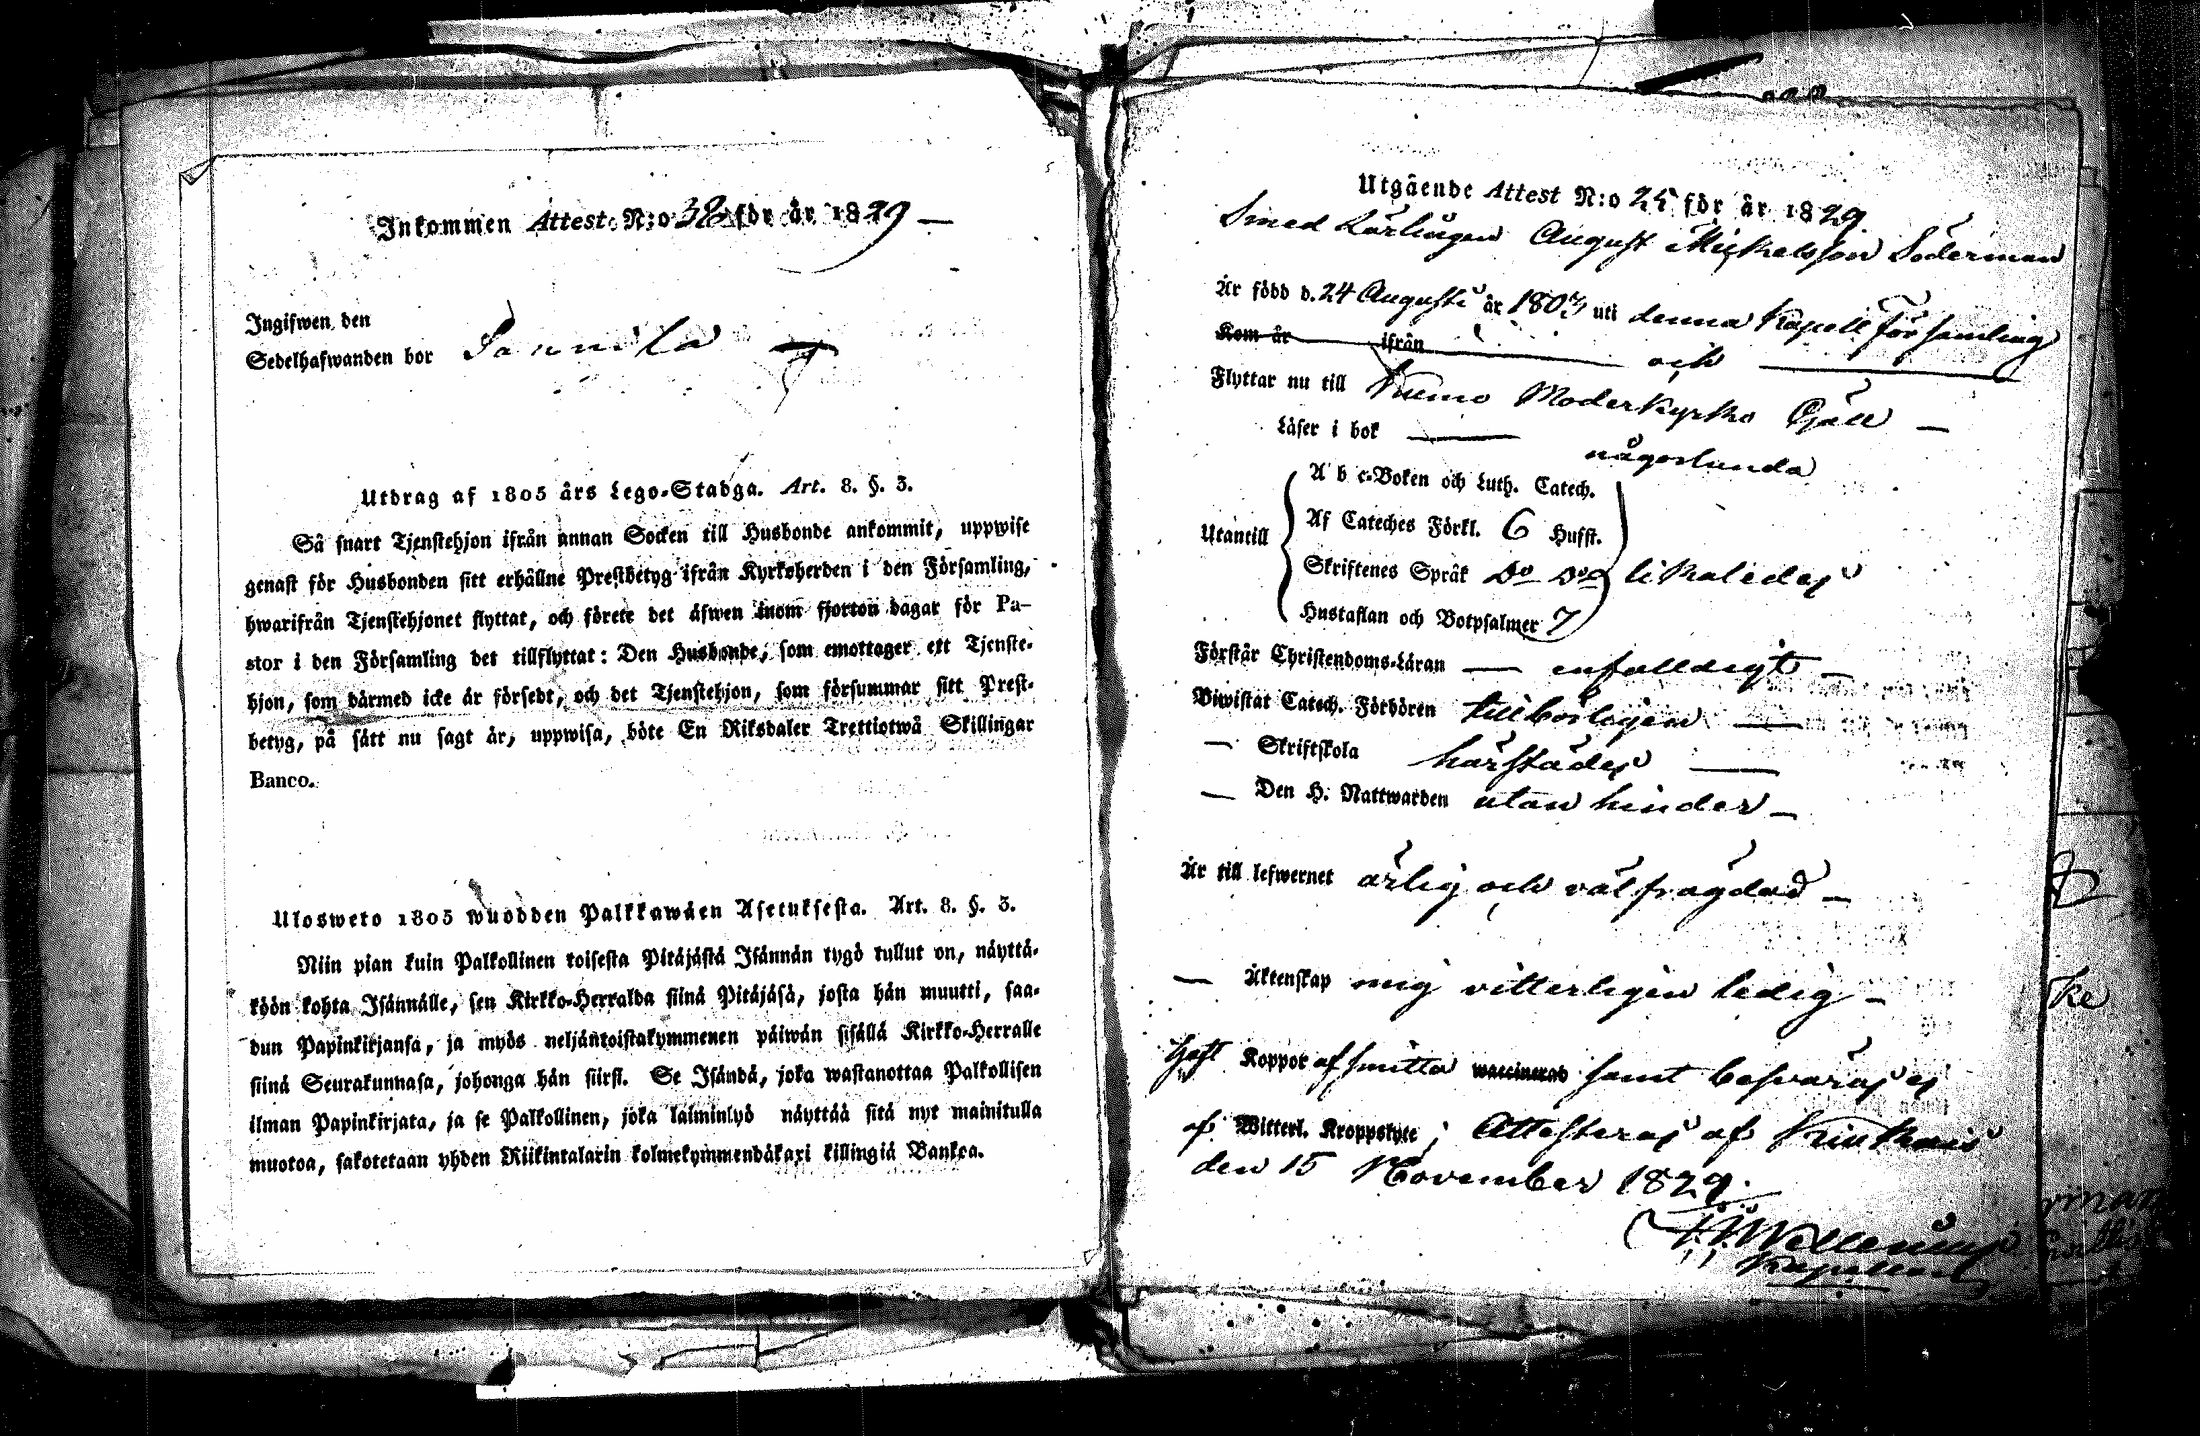 Inkommen Attest N:o 38 för år 1829 —
Ingifwen den
Sedelhafwanden bor Sannila —
Utdrag af 1805 års Lego-Stadga. Art. 8. §. 3.
Så snart Tjenstehjon ifrån annan Socken till Husbonde ankommit, uppwise
genast för Husbonden sitt erhållne Prestbetyg ifrån Kyrkoherden i den Församling,
hwarifrån Tjenstehjonet flyttat, och förete det äfwen inom fjorton dagar för Pa-
stor i den Församling det tillflyttat: Den Husbonde, som emottager ett Tjenste-
hjon, som därmed icke är försedt, och det Tjenstehjon, som försummar sitt Prest-
betyg, på sätt nu sagt är, uppwisa, böte En Riksdaler Trettiotwå Skillingar
Banco.
Ulosweto 1805 wuodden Palkkawäen Asetuksesta. Art. 8. §. 3.
Niin pian kuin Palkollinen toisesta Pitäjästä Isännän tygö tullut on, näyttä-
köön kohta Isännälle, sen Kirkko-Herralda siinä Pitäjäsä, josta hän muutti, saa-
dun Papinkirjansa, ja myös neljäntoistakymmenen päiwän sisällä Kirkko-Herralle
siinä Seurakunnasa, johonga hän siirst. Se Isändä, joka wastanottaa Palkollisen
ilman Papinkirjata, ja se Palkollinen, joka laiminlyö näyttää sitä nyt mainitulla
muotoa, sakotetaan yhden Riikintalarin kolmekymmendäkaxi killingiä Bankoa.
Utgående Attest N:o 25 för år 1829.
Smed Lärlingen August Mickelsson Söderman
Är född d. 24 Augusti år 1803 uti denna Kapell Församling
Kom år ifrån — och —
Flyttar nu till Kumo Moderkyrko Gäll —
Läser i bok — någorlunda
A b c-Boken och Luth. Catech.
Utantill Af Cateches Förkl. 6 Hufst.
Skriftenes Språk Do Do likaledes
Hustaflan och Botpsalmer 7
Förstår Christendoms-Läran — enfalldigt —
Biwistat Catech. Förhören tillbörligen —
— Skriftskola härstädes —
— Den H. Nattwarden utan hinder —
Är till lefwernet ärlig och välfrägdad —
— Äktenskap mig vitterligen ledig —
Haft Koppor af smitta waccinerad samt besväras ej
af Witterl. Kroppslyte; Attesteras af
den 15 November 1829.
Kapellan